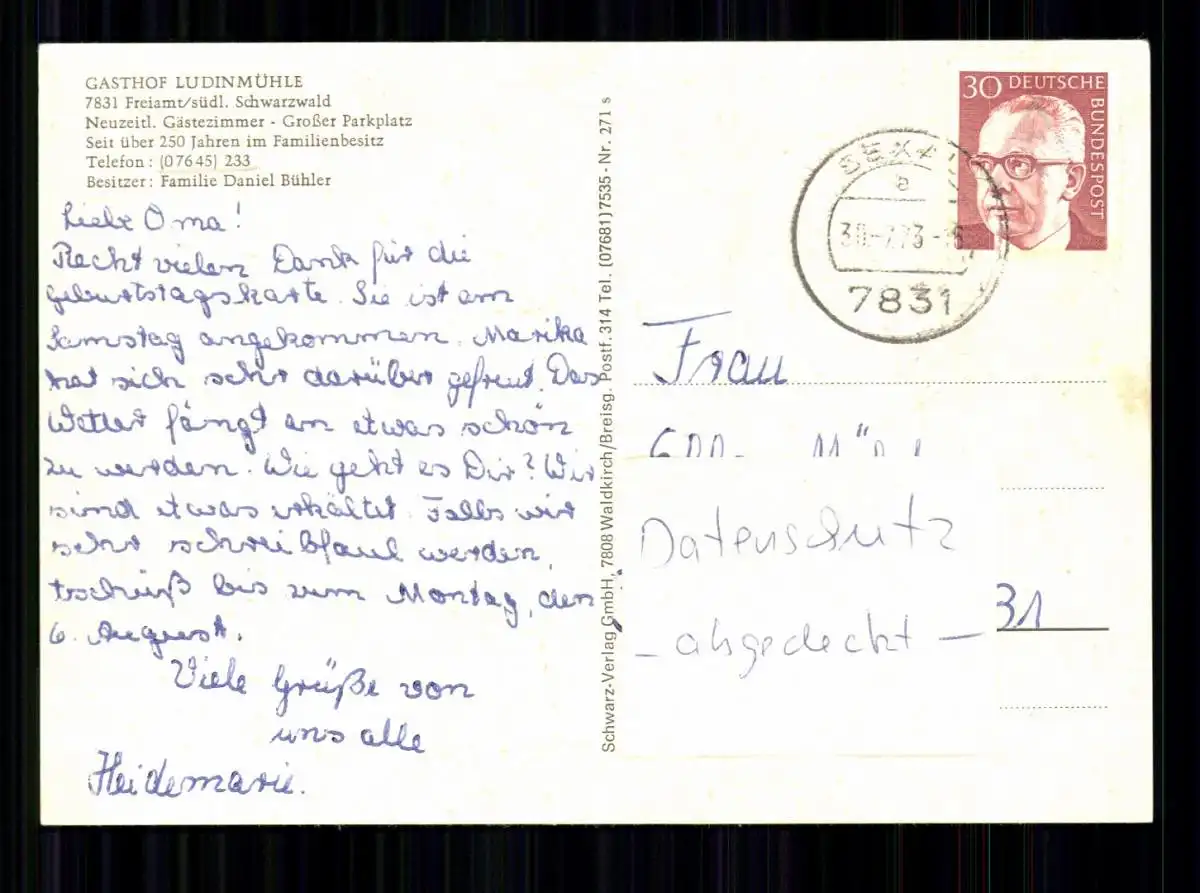 GASTHOF LUDINMÜHLE
7831 Freiamt/südl. Schwarzwald
Neuzeitl. Gästezimmer - Großer Parkplatz
Seit über 250 Jahren im Familienbesitz
Telefon: (07645) 233
Besitzer: Familie Daniel Bühler
Liebe Oma!
Recht vielen Dank für die
Geburtstagskarte. Sie ist am
Samstag angekommen. Marika
hat sich sehr darüber gefreut. Das
Wetter fängt an etwas schön
zu werden. Wie geht es Dir? Wir
sind etwas erkältet. Falls wir
sehr schreibfaul werden,
tschüß bis zum Montag, den
6. August.
Viele Grüße von
uns alle
Heidemarie.
Schwarz-Verlag GmbH, 7808 Waldkirch/Breisg. Postf. 314 Tel. (07681) 7535 - Nr. 271 s
30 DEUTSCHE
BUNDESPOST
b
30.-7.73-16
7831
Frau
Datenschutz
- abgedeckt -
31